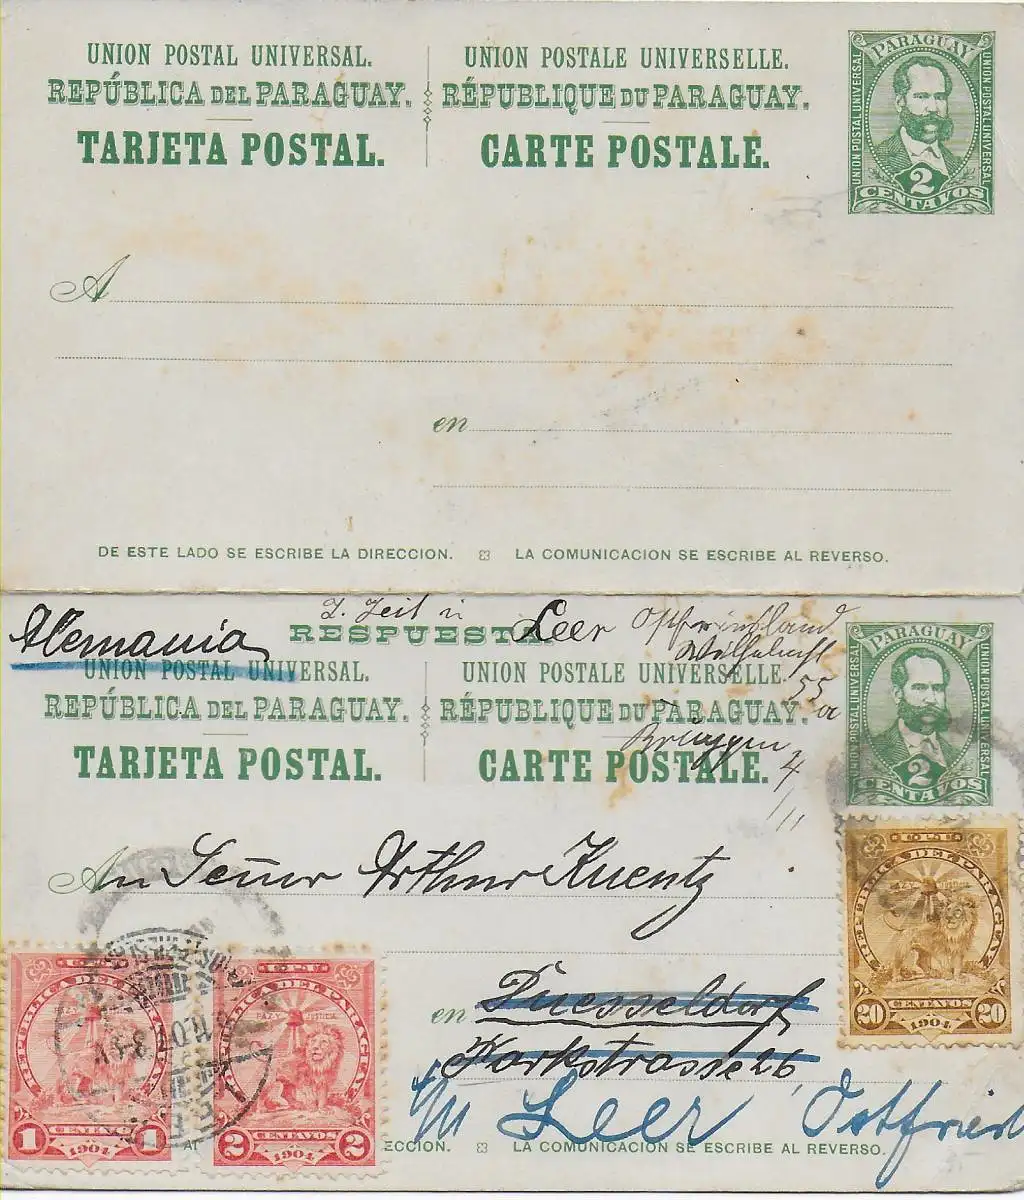 UNION POSTAL UNIVERSAL.
REPÚBLICA DEL PARAGUAY.
TARJETA POSTAL.
UNION POSTALE UNIVERSELLE.
RÉPUBLIQUE DU PARAGUAY.
CARTE POSTALE.
PARAGUAY
UNION POSTAL UNIVERSAL
UNION POSTAL UNIVERSAL
2
CENTAVOS
A
en
DE ESTE LADO SE ESCRIBE LA DIRECCION. LA COMUNICACION SE ESCRIBE AL REVERSO.
Alemania
z. Zeit in Leer Ostfriesland
RESPUESTA
55a
Brüggen
4/11
UNION POSTAL UNIVERSAL.
REPÚBLICA DEL PARAGUAY.
TARJETA POSTAL.
UNION POSTALE UNIVERSELLE.
RÉPUBLIQUE DU PARAGUAY.
CARTE POSTALE.
PARAGUAY
UNION POSTAL UNIVERSAL
UNION POSTAL UNIVERSAL
2
CENTAVOS
An Señor Arthur Kuentz
en Duesseldorf
Parkstrasse 26
Leer Ostfriesl
U.P.U.
REPUBLICA DEL PARAGUAY
PAZ Y JUSTICIA
20 CENTAVOS 20
1904
U.P.U.
REPUBLICA DEL PARAGUAY
PAZ Y JUSTICIA
1 CENTAVO 1
1904
U.P.U.
REPUBLICA DEL PARAGUAY
PAZ Y JUSTICIA
2 CENTAVOS 2
1904
ECCION. LA COMUNICACION SE ESCRIBE AL REVERSO.